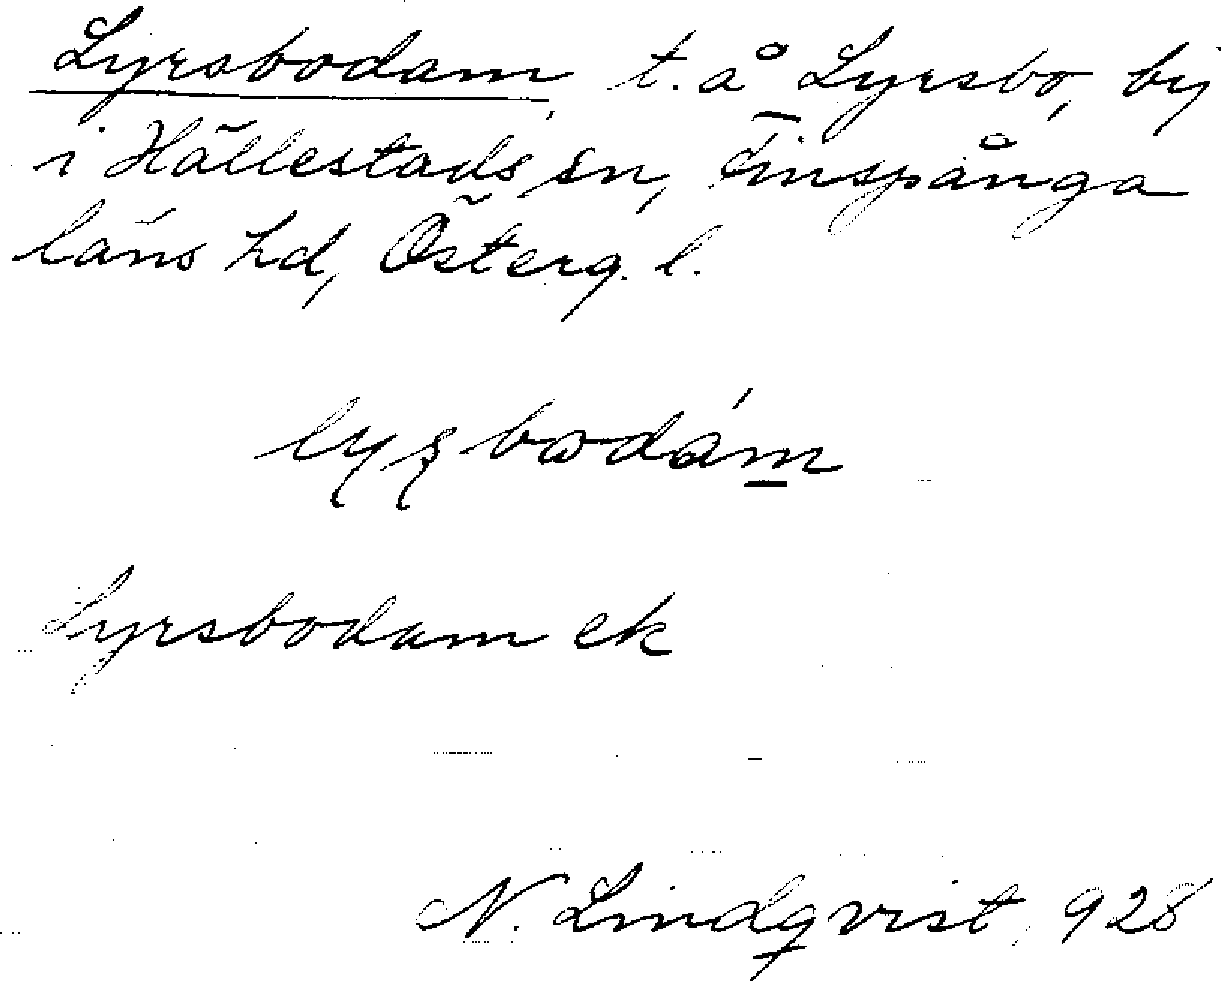 Lyrsbodam, t. å Lyrsbo, by
i Hällestads sn, Finspånga
läns hd, Österg. l.
Lyrsbodam ek
N. Lindqvist, 928